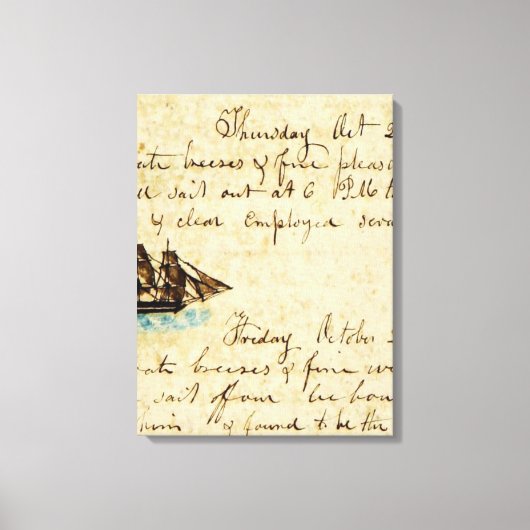 Thursday Oct 2
ate breezes & fine pleas
sail out at 6 PM t
& clear Employed
Friday October
ate breezes & fine w
sail off our
him & found to be the